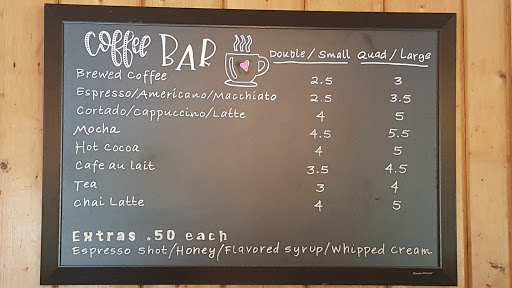 Coffee BAR Double/Small Quad/Large
Brewed Coffee 2.5 3
Espresso/Americano/Macchiato 2.5 3.5
Cortado/Cappuccino/Latte 4 5
Mocha 4.5 5.5
Hot Cocoa 4 5
Cafe au lait 3.5 4.5
Tea 3 4
Chai Latte 4 5
Extras .50 each
Espresso Shot/Honey/Flavored Syrup/Whipped Cream